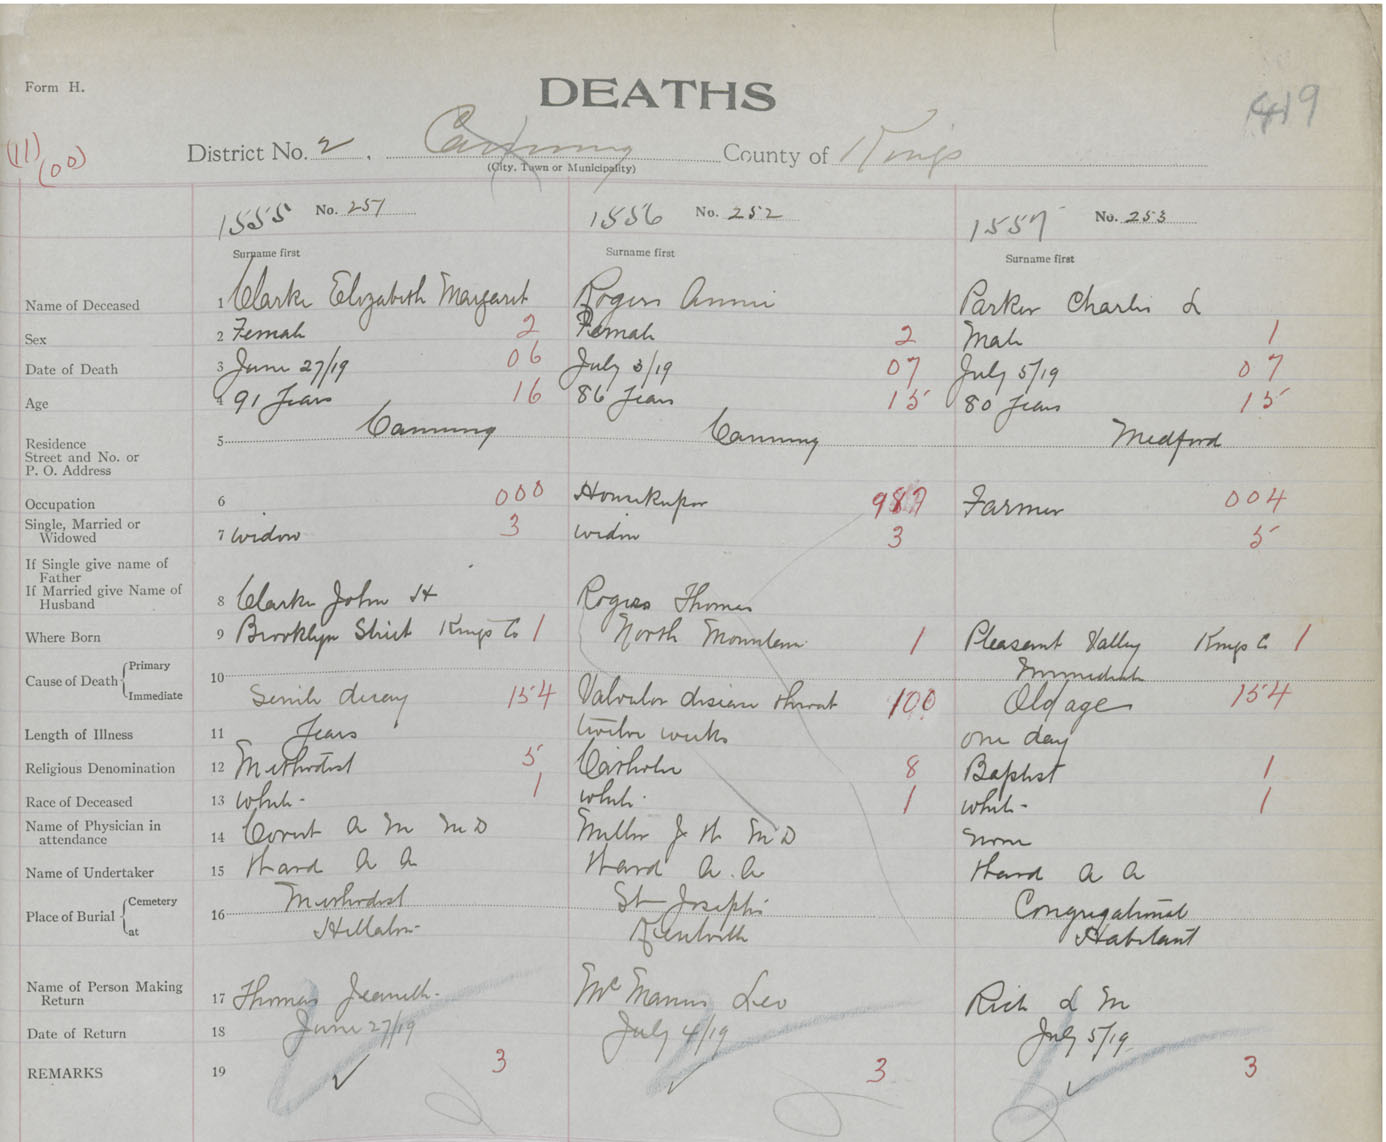 Form H.
DEATHS
419
(11)
(00)
District No. 2. Canning County of Kings
(City, Town or Municipality)
1555 No. 251 1556 No. 252 1557 No. 253
Surname first Surname first Surname first
Name of Deceased 1 Clarke Elizabeth Margaret Rogers Annie Parker Charlie L
Sex 2 Female 2 Female 2 Male 1
Date of Death 3 June 27/19 06 July 3/19 07 July 5/19 07
Age 4 91 Years 16 86 Years 15 80 Years 15
Residence 5 Canning Canning Medford
Street and No. or
P. O. Address
Occupation 6 000 Housekeeper 987 Farmer 004
Single, Married or
Widowed 7 widow 3 widow 3 5
If Single give name of
Father
If Married give Name of
Husband 8 Clarke John H Rogers Thomas
Where Born 9 Brooklyn Street Kings Co 1 North Mountain 1 Pleasant Valley Kings Co 1
Cause of Death Primary 10 Immediate
Immediate Senile decay 154 Valvular disease throat 100 Old age 154
Length of Illness 11 Years twelve weeks one day
Religious Denomination 12 Methodist 5 Catholic 8 Baptist 1
Race of Deceased 13 white 1 white 1 white 1
Name of Physician in
attendance 14 Covert A M M D Miller J H M D none
Name of Undertaker 15 Hand A A Hand A. A Hand A A
Place of Burial Cemetery 16 Methodist St Joseph's Congregational
at Hillaton Kentville Habitant
Name of Person Making
Return 17 Thomas Jeaneth Mc Manus Leo Rich L M
Date of Return 18 June 27/19 July 4/19 July 5/19
REMARKS 19 ✓ 3 ✓ 3 ✓ 3